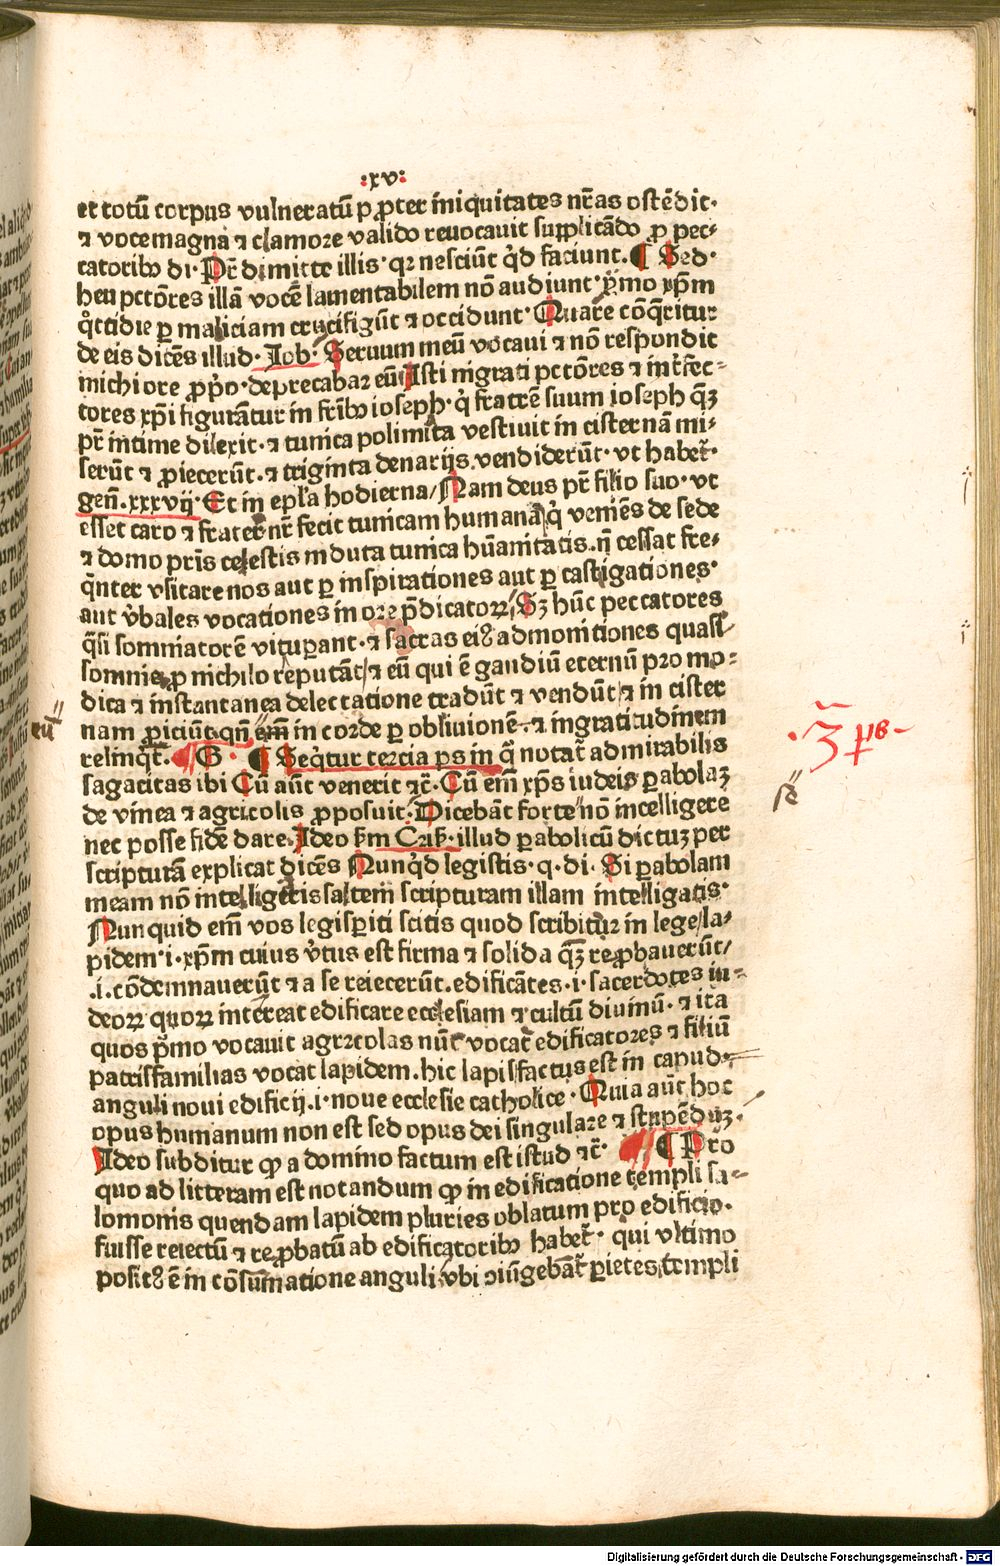 :xv:
et totū corpus vulneratū ꝓpter iniquitates nr̄as ostēdit·
⁊ voce magna ⁊ clamore valido reuocauit supplicādo ꝓ pec⸗
catoribꝰ di· Pr̄ dimitte illis· qꝛ nesciūt qd̓ faciunt. ¶ Sed·
heu pctōres illā vocē lamentabilem nō audiunt· ymo xp̄m
q̊ttidie ꝑ maliciam crucifigūt ⁊ occidunt· Quare cōq̄ritur
de eis dicēs illud· Iob· Seruum meū vocaui ⁊ nō respondit
michi ore ꝓpo· deprecabar eū Isti ingrati pctōres ⁊ int̄fec⸗
tores xp̄i figurātur in fr̄ibꝰ ioseph· q̇ fratrē suum ioseph quē
pr̄ intime dilexit· ⁊ tunica polimita vestiuit in cisternā mi⸗
serūt ⁊ ꝓiecerūt· ⁊ triginta denarijs vendiderūt· vt habet̄·
gen̄. xxxvij· Et in epl̄a hodierna/ Nam deus pr̄ filio suo· vt
esset caro ⁊ frater nr̄ fecit tunicam humanā q̇ veniēs de sede
⁊ domo pr̄is celestis induta tunica hūanitatis. nō cessat fre⸗
q̄nter visitare nos aut ꝑ inspirationes aut ꝑ castigationes·
aut v̓bales vocationes in ore p̄dicatoꝝ/ Sꝫ hūc peccatores
q̄si somniatorē vituꝑant· ⁊ sacras eiꝰ admonitiones quasi
somnia ꝓ nichilo reputāt/ ⁊ eū qui ē gaudiū eternū pro mo⸗
dica ⁊ instantanea delectatione tradūt ⁊ vendūt/ ⁊ in cister
nam ꝓiciūt qn̄ em̄ in corde ꝑ obliuionē· ⁊ ingratitudinem
relinqt̄. G · ¶ Seq̇tur tercia ps in q̄ notat̄ admirabilis
sagacitas ibi Cū aūt venerit ⁊c̄· Cū em̄ xp̄s iudeis ꝑabolaꝫ
de vinea ⁊ agricolis ꝓposuit· Dicebāt forte nō intelligere
nec posse fidē dare. Ideo ẜm Criẜ· illud ꝑabolicū dictuꝫ per
scripturā explicat dicēs Nunqd̓ legistis· q· di· Si ꝑabolam
meam nō intelligeris saltem scripturam illam intelligatis·
Nunquid em̄ vos legisꝑiti scitis quod scribitur in lege/ la⸗
pidem· i· xp̄m cuius v̓tus est firma ⁊ solida quē reꝓbauerūt/
.i. cōdemnauerūt ⁊ a se reiecerūt. edificātes· i· sacerdotes iu⸗
deoꝝ quoꝝ intereat edificare ecclesiam ⁊ cultū diuinū· ⁊ ita
quos p̄mo vocauit agricolas nūc vocat̄ edificatores ⁊ filiū
patrisfamilias vocat lapidem. hic lapis factus est in capud·
anguli noui edificij. i· noue ecclesie catholice· Quia aūt hoc
opus humanum non est sed opus dei singulare ⁊ stupēdūꝫ·
Ideo subditur ꝙ a domino factum est istud ⁊c̄· ¶ Pro
quo ad litteram est notandum ꝙ in edificatione templi sa⸗
lomonis quendam lapidem pluries oblatum pro edificio·
fuisse reiectū ⁊ reꝓbatū ab edificatoribꝰ habet̄· qui vltimo
positꝰ ē in cōsum̄atione anguli/ vbi ↄiūgebāt̄ ꝑietes templi
Digitalisierung gefördert durch die Deutsche Forschungsgemeinschaft - DFG